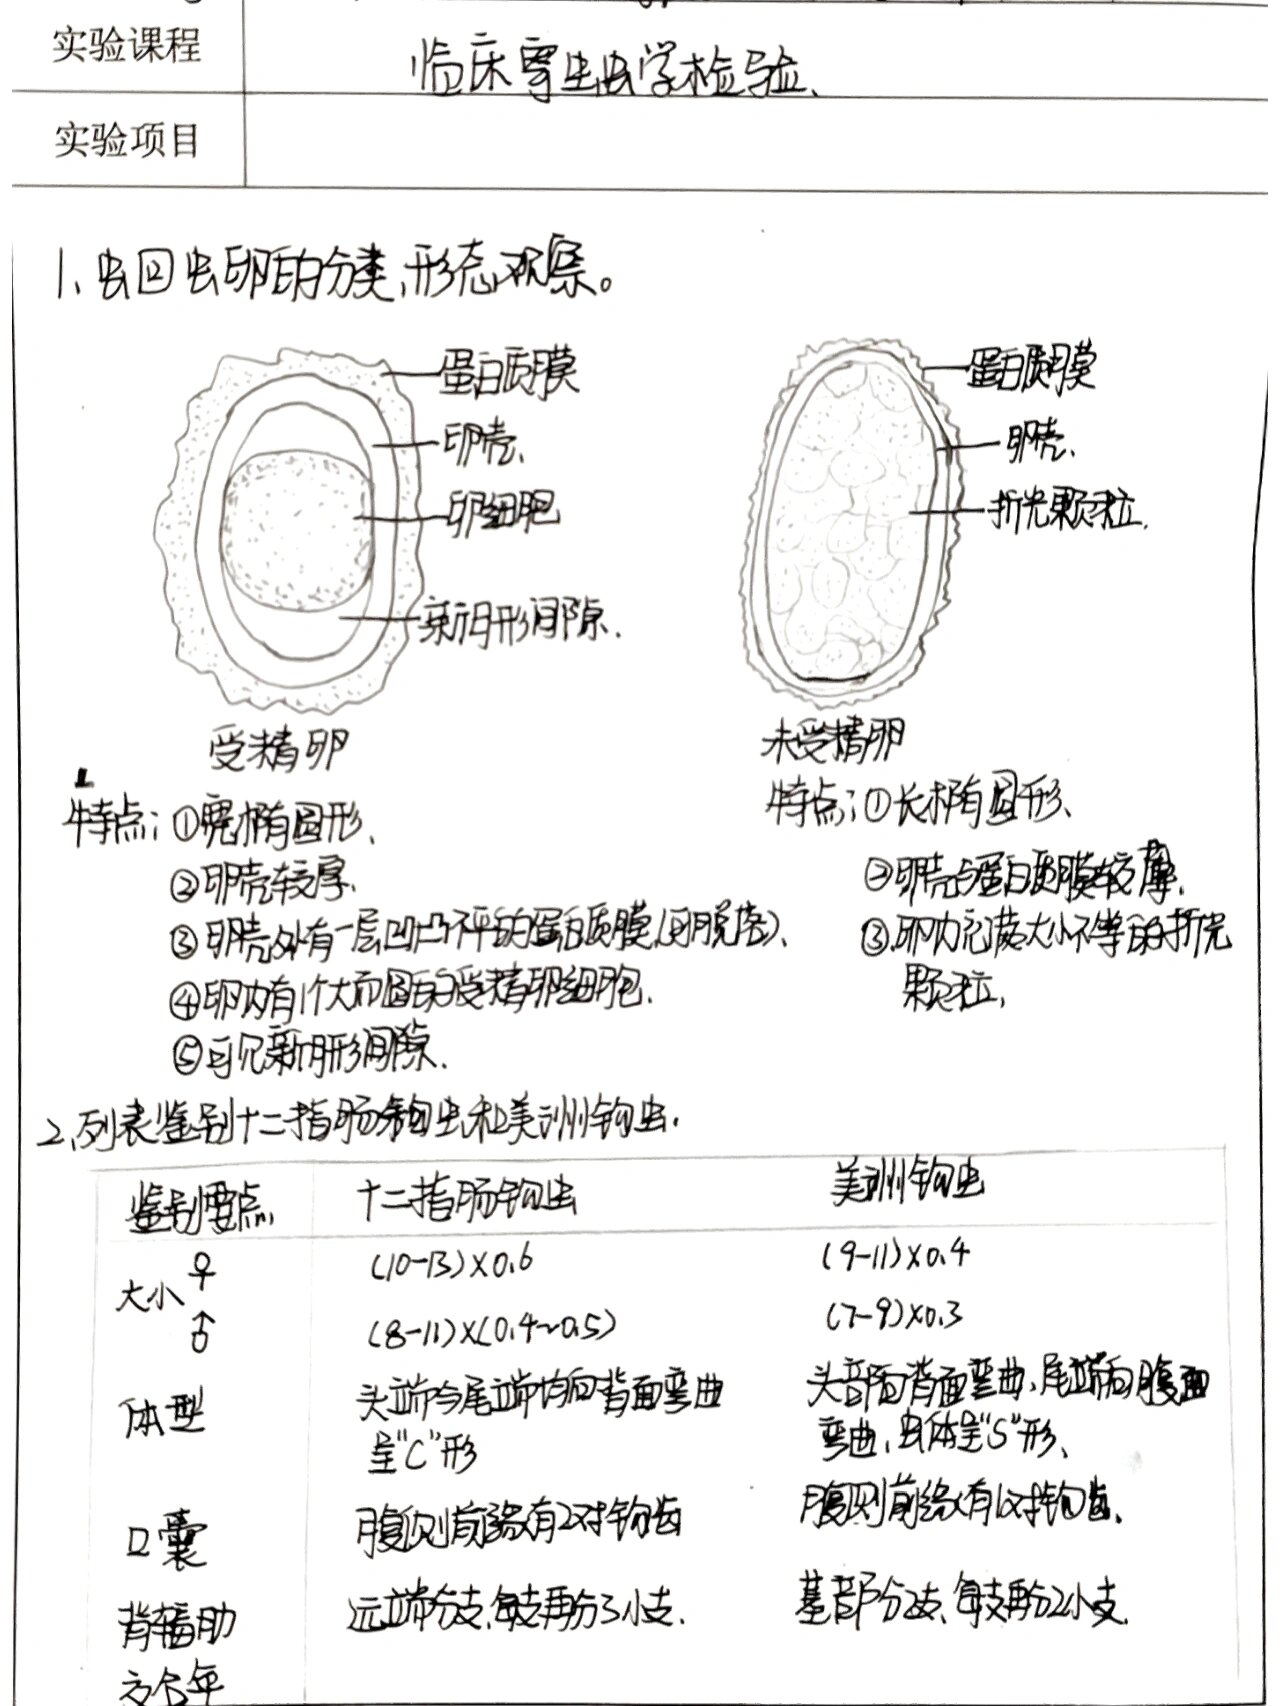 实验课程
临床寄生虫学检验、
实验项目
1、虫回虫卵的分类、形态、观察。
蛋白质膜
卵壳、
卵细胞
新月形间隙.
受精卵
蛋白质膜
卵壳、
折光颗粒.
未受精卵
特点: ①宽椭圆形、
②卵壳较厚.
③卵壳外有一层凹凸不平的蛋白质膜(可脱落)、
④卵内有1个大而圆的受精卵细胞.
⑤可见新月形间隙.
特点: ①长椭圆形、
②卵壳与蛋白质膜较薄.
③卵内充满大小不等的折光
颗粒,
2、列表鉴别十二指肠钩虫和美洲钩虫.
鉴别要点 十二指肠钩虫 美洲钩虫
大小 ♀ (10-13)×0.6 (9-11)×0.4
♂ (8-11)×(0.4~0.5) (7-9)×0.3
体型 头端与尾端均向背面弯曲 头部向背面弯曲、尾端向腹面
呈"C"形 弯曲,虫体呈"S"形、
口囊 腹侧前缘有2对钩齿 腹侧前缘有1对钩齿、
背辐肋 远端分支、每支再分3小支. 基部分2支、每支再分2小支.
交合伞